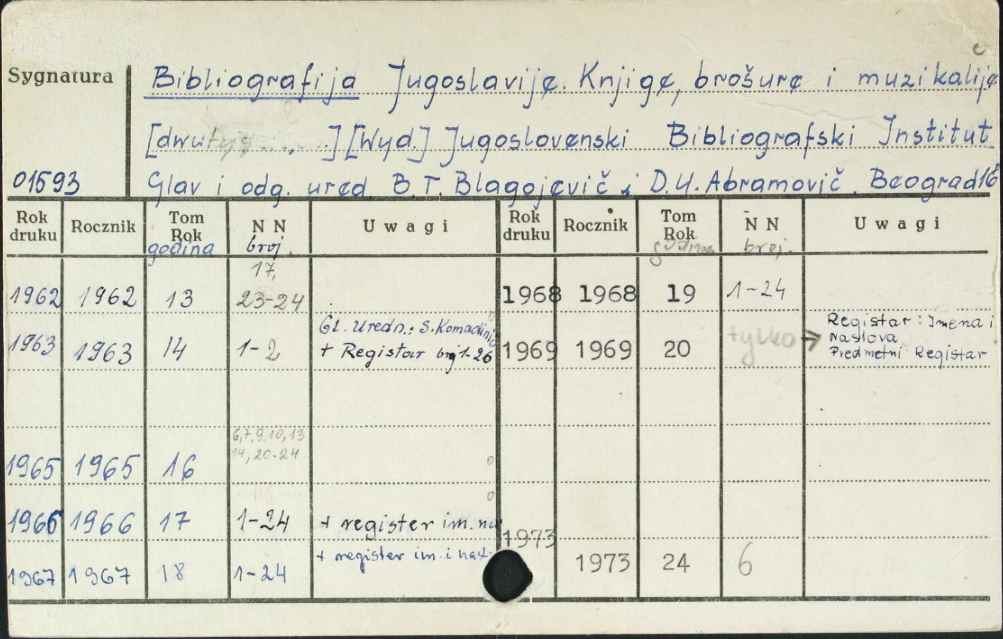 Sygnatura
Bibliografija Jugoslavije. Knjige, brošure i muzikalije
[dwutyg.....] [Wyd.] Jugoslovenski Bibliografski Institut
01593 Glav i odg. ured. B.T. Blagojevič i D.U. Abramovič. Beograd 16
Rok druku Rocznik Tom Rok godina N N broj. Uwagi Rok druku Rocznik Tom Rok godina N N broj. Uwagi
17,
1962 1962 13 23-24 1968 1968 19 1-24
Gl. Uredn.: S. Komadinić
1963 1963 14 1-2 + Registar broj 1-26 1969 1969 20 tylko → Registar: Imena i
Naslova
Predmetni Registar
6,7,9,10,13
14, 20-24
1965 1965 16
1966 1966 17 1-24 + register im. na
1973
1967 1967 18 1-24 + register im. i nasl. 1973 24 6